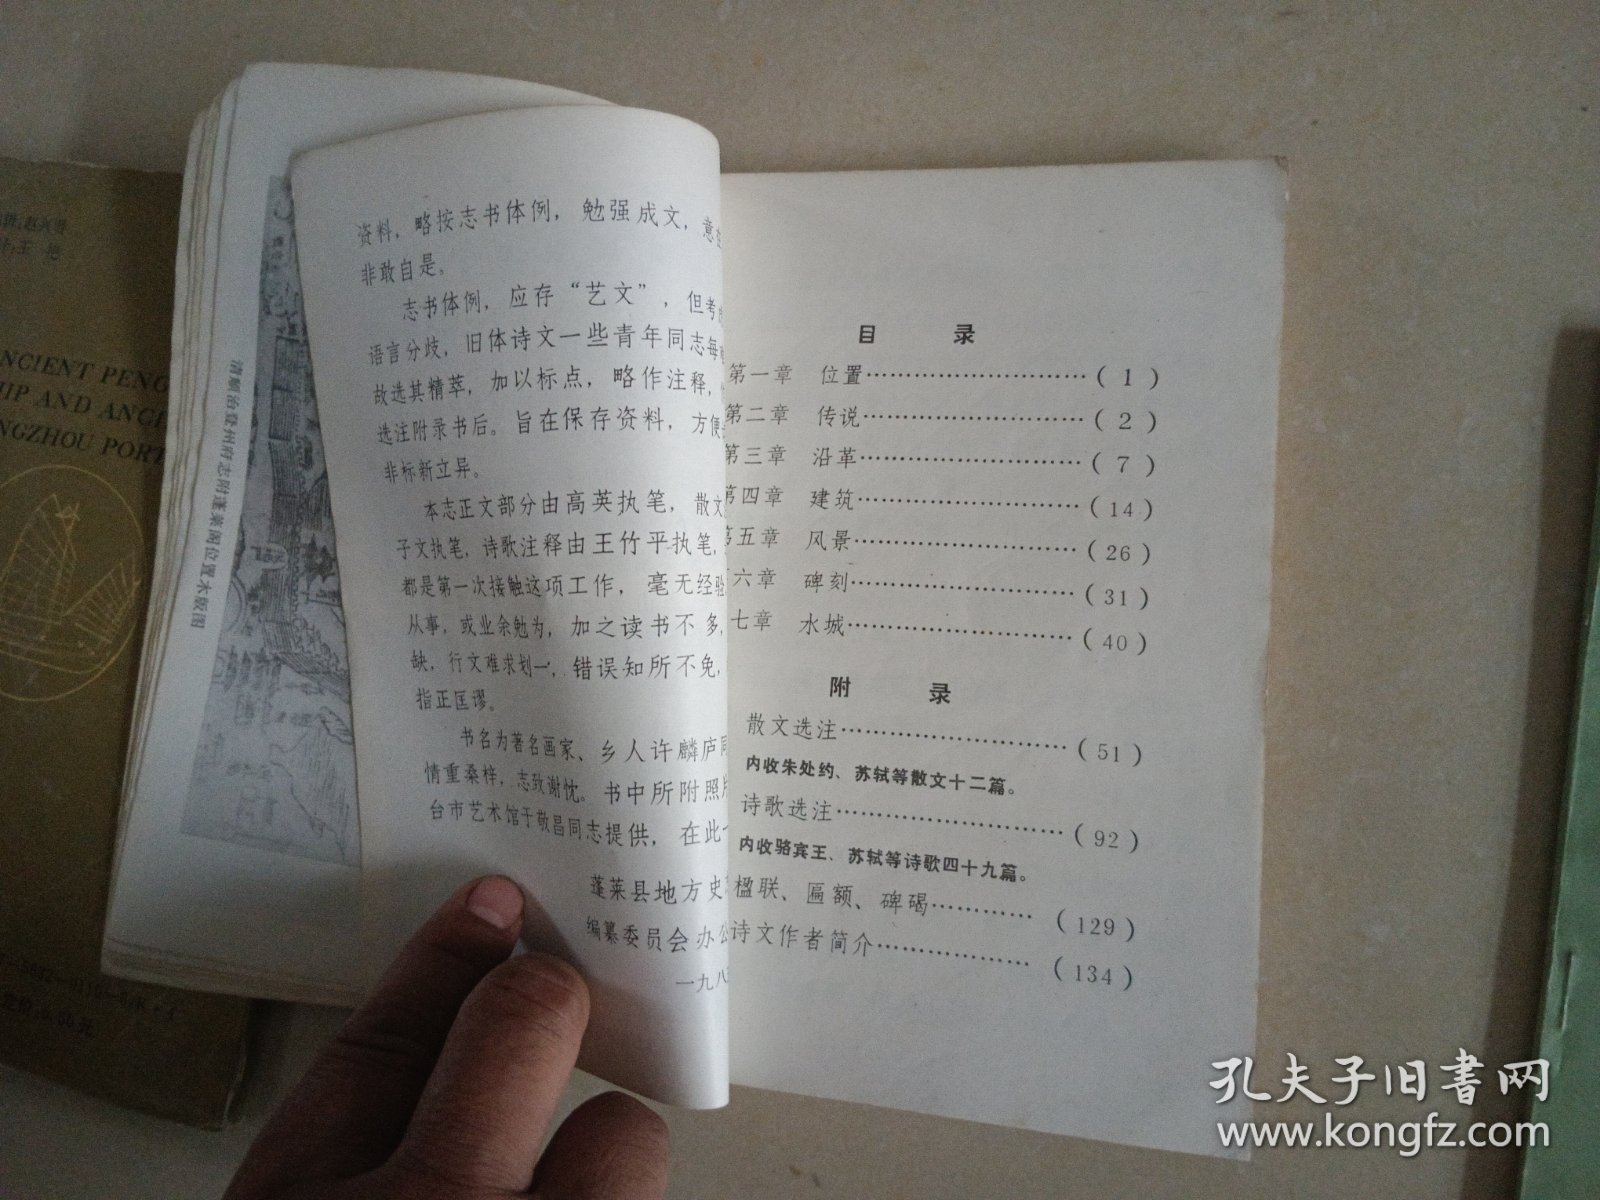 资料，略按志书体例，勉强成文，意在
非敢自是。
志书体例，应存“艺文”，但考
语言分歧，旧体诗文一些青年同志每
故选其精萃，加以标点，略作注释，
选注附录书后。旨在保存资料，方便
非标新立异。
本志正文部分由高英执笔，散文
子文执笔，诗歌注释由王竹平执笔，
都是第一次接触这项工作，毫无经验
从事，或业余勉为，加之读书不多，
缺，行文难求划一，错误知所不免，
指正匡谬。
书名为著名画家、乡人许麟庐同
情重桑梓，志致谢忱。书中所附照片
台市艺术馆于敬昌同志提供，在此一
蓬莱县地方史
编纂委员会办公
一九八
目 录
第一章 位置…………………………（1）
第二章 传说…………………………（2）
第三章 沿革…………………………（7）
第四章 建筑…………………………（14）
第五章 风景…………………………（26）
六章 碑刻…………………………（31）
七章 水城…………………………（40）
附 录
散文选注…………………………（51）
内收朱处约、苏轼等散文十二篇。
诗歌选注…………………………（92）
内收骆宾王、苏轼等诗歌四十九篇。
楹联、匾额、碑碣…………（129）
诗文作者简介………………（134）
清顺治登州府志附蓬莱阁位置木版图
NCIENT PENG
HIP AND ANCI
NGZHOU PORT
孔夫子旧书网
www.kongfz.com